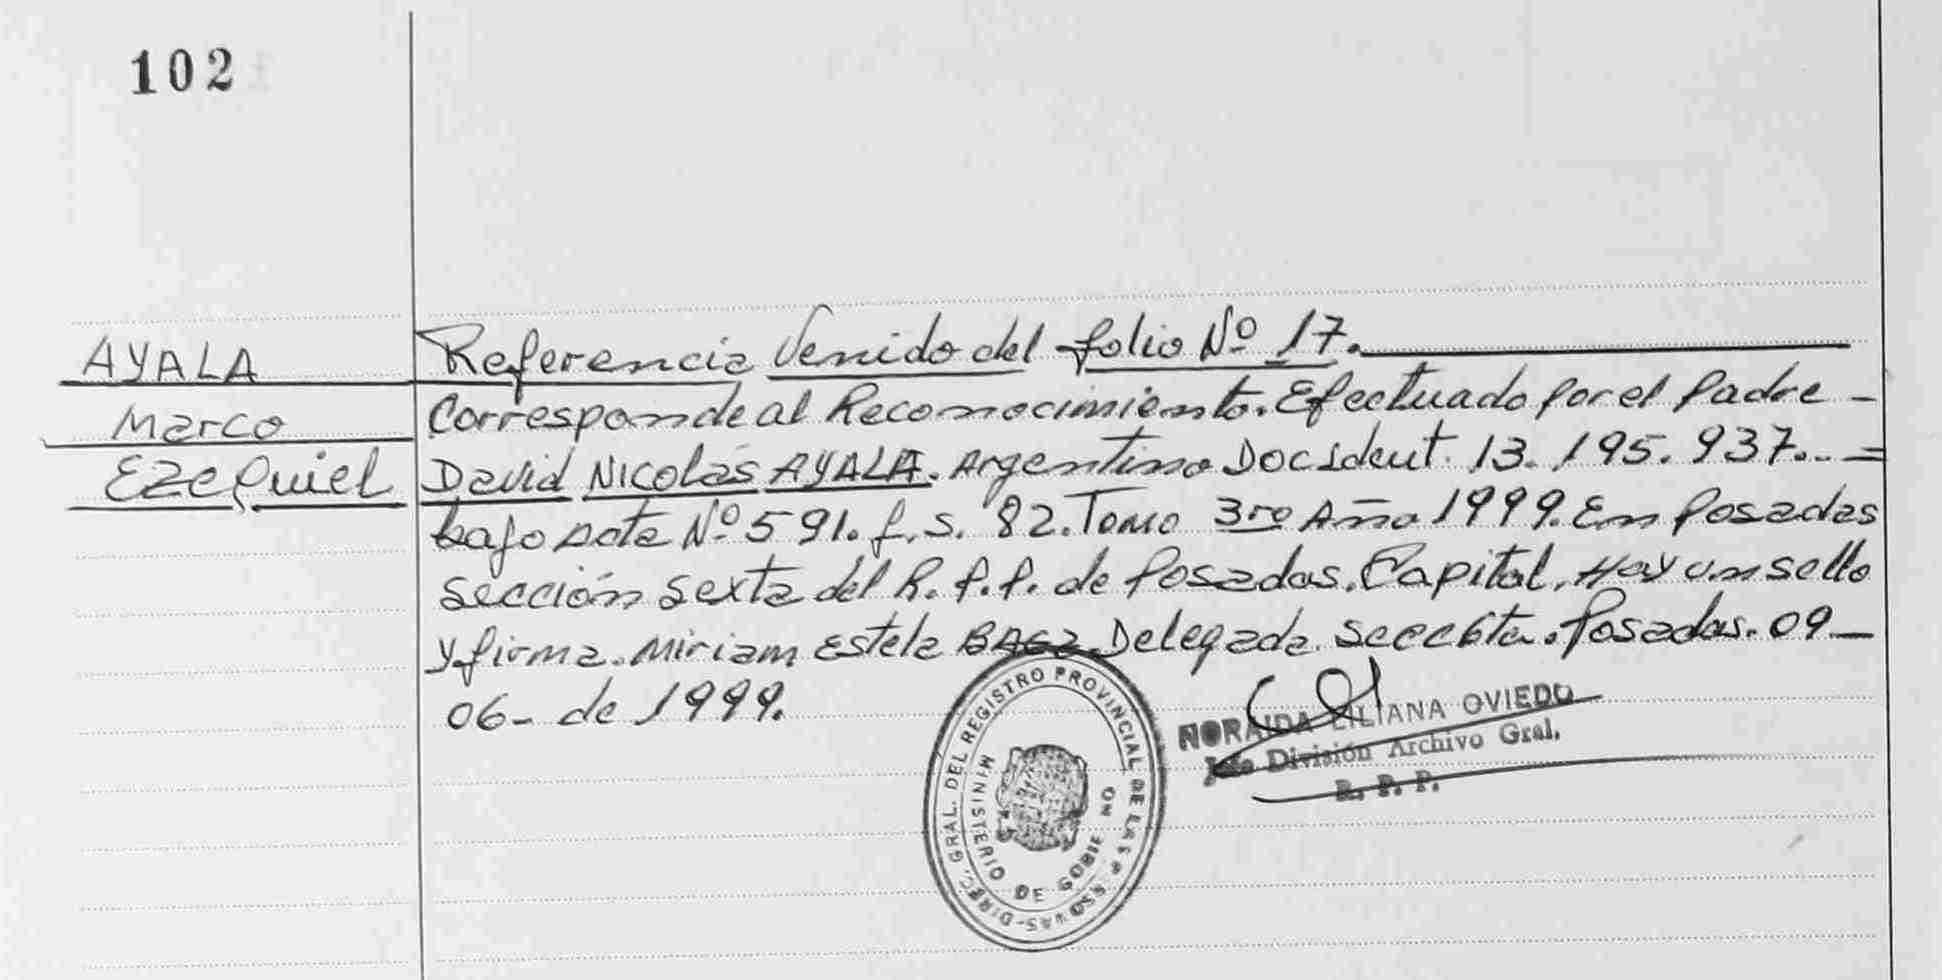 102
AYALA
Marco
Ezequiel
Referencia Venido del folio Nº 17.
Corresponde al Reconocimiento. Efectuado por el Padre -
David Nicolás AYALA. Argentino Doc Ident. 13.195.937.. =
bajo Acta Nº 591. f.s. 82. Tomo 3ro Año 1999. En Posadas
sección sexta del R.P.P. de Posadas. Capital. Hay un sello
y firma. Miriam Estela BAEZ. Delegada. Secc 6ta. Posadas. 09-
06- de 1999.
NORAIDA LILIANA OVIEDO
Jefe División Archivo Gral.
R. P. P.
DIREC. GRAL. DEL REGISTRO PROVINCIAL DE LAS PERSONAS
MINISTERIO DE GOBIERNO